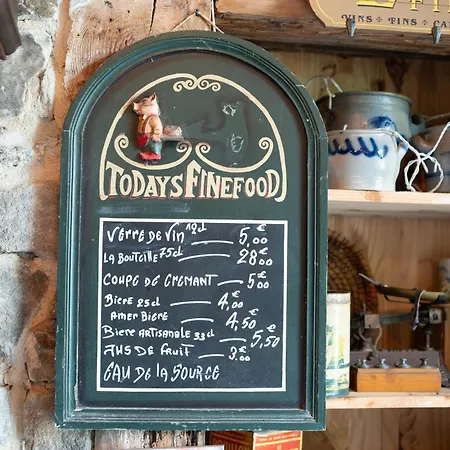 VINS • FINS •
TODAYS FINEFOOD
Verre de Vin 12cl 5,00€
LA BOUTEILLE 75cl 28,00€
COUPE DE CREMANT 5,00€
Biere 25cl 4,00€
Amer Biere 4,50€
Biere ARTISANALE 33cl 5,50€
JUS DE FRUIT 3,00€
EAU DE LA SOURCE